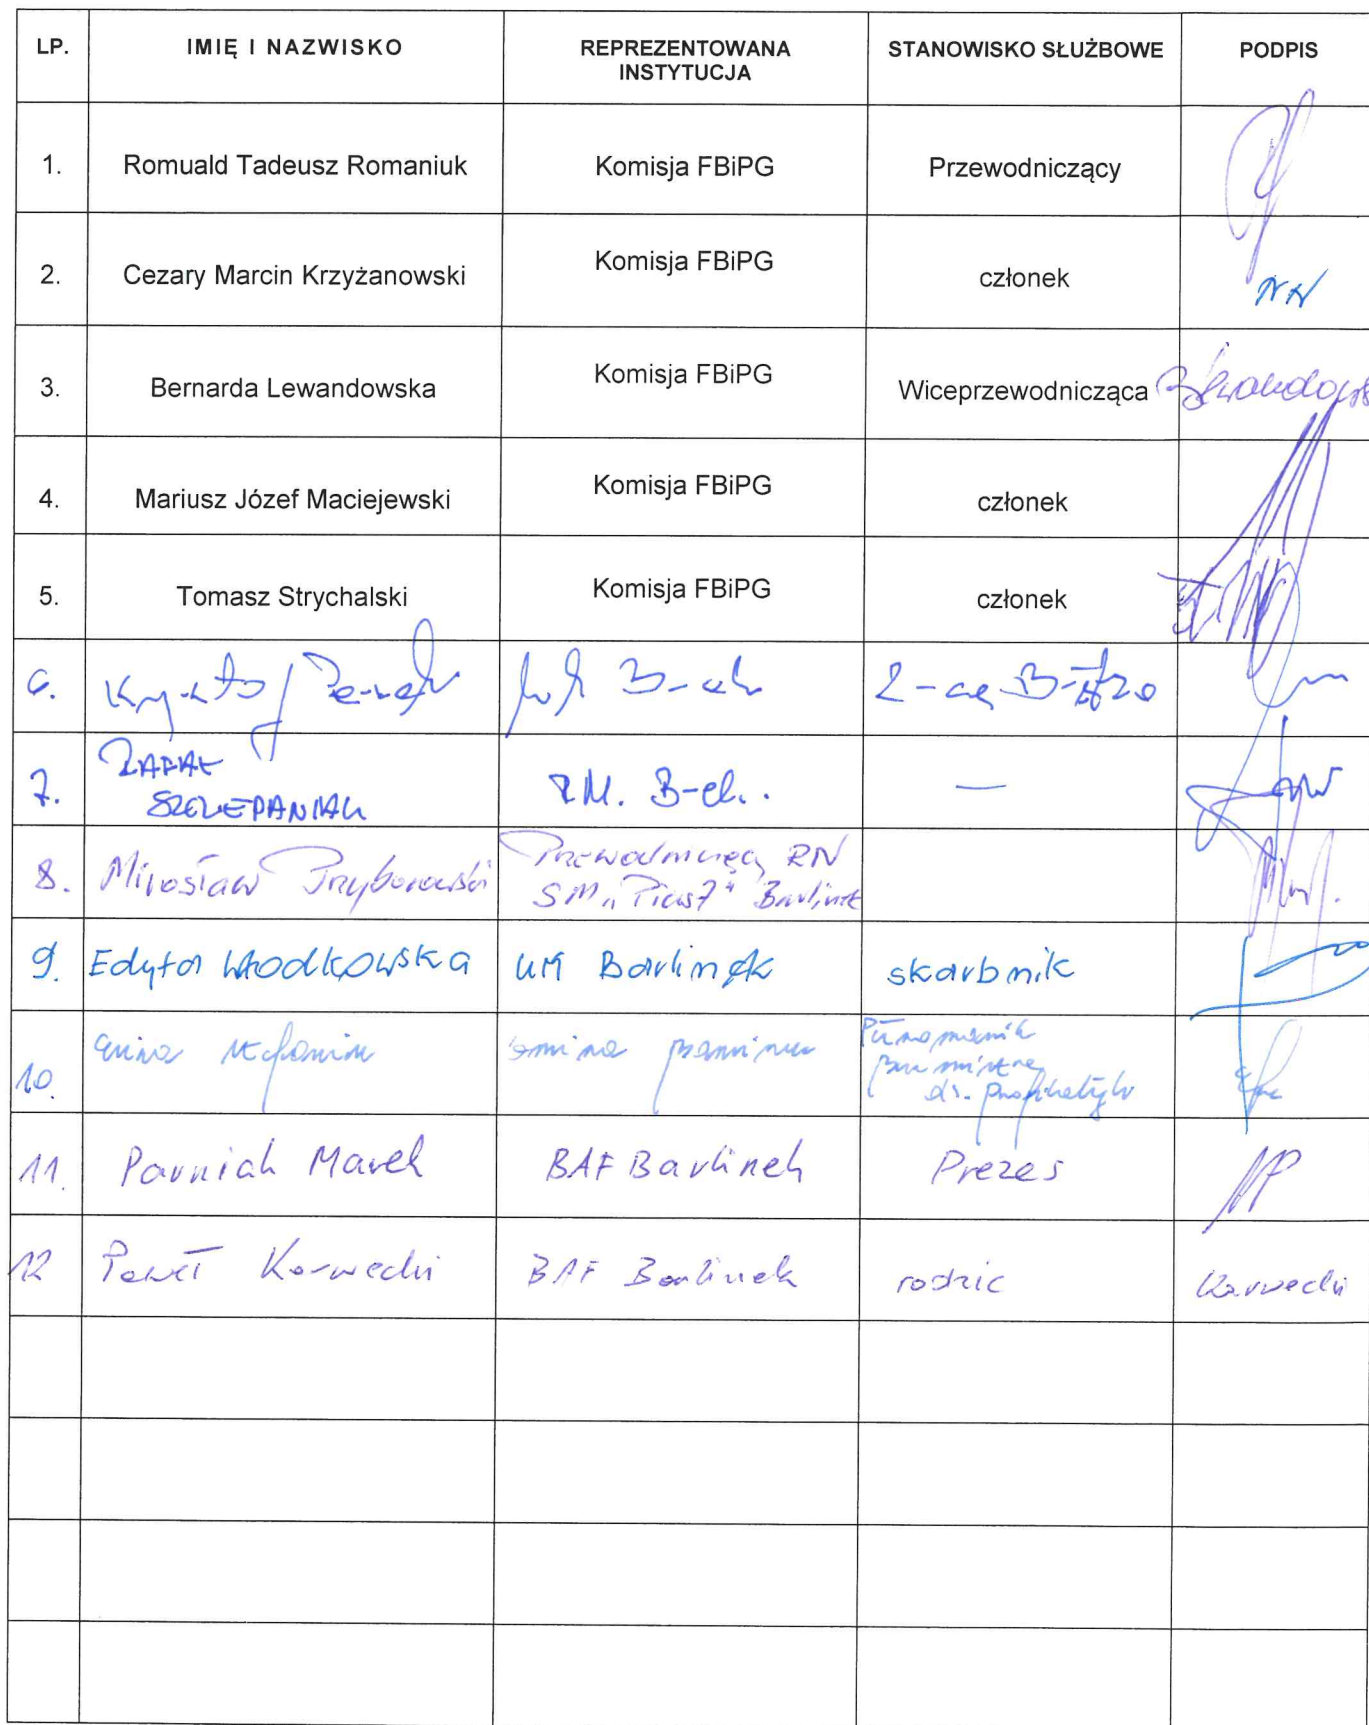 LP. IMIĘ I NAZWISKO REPREZENTOWANA INSTYTUCJA STANOWISKO SŁUŻBOWE PODPIS
1. Romuald Tadeusz Romaniuk Komisja FBiPG Przewodniczący
2. Cezary Marcin Krzyżanowski Komisja FBiPG członek NN
3. Bernarda Lewandowska Komisja FBiPG Wiceprzewodnicząca
4. Mariusz Józef Maciejewski Komisja FBiPG członek
5. Tomasz Strychalski Komisja FBiPG członek
6.
7. RAFAŁ SZCZEPANIAK R.M. B-ek. —
8. Mirosław Przyborowski Przewodniczący RN
SM „Piast" Barlinek
9. Edyta Włodkowska UM Barlinek skarbnik
10.
11. Parniak Marek BAF Barlinek Prezes MP
12 Paweł Karwecki BAF Barlinek rodzic Karwecki